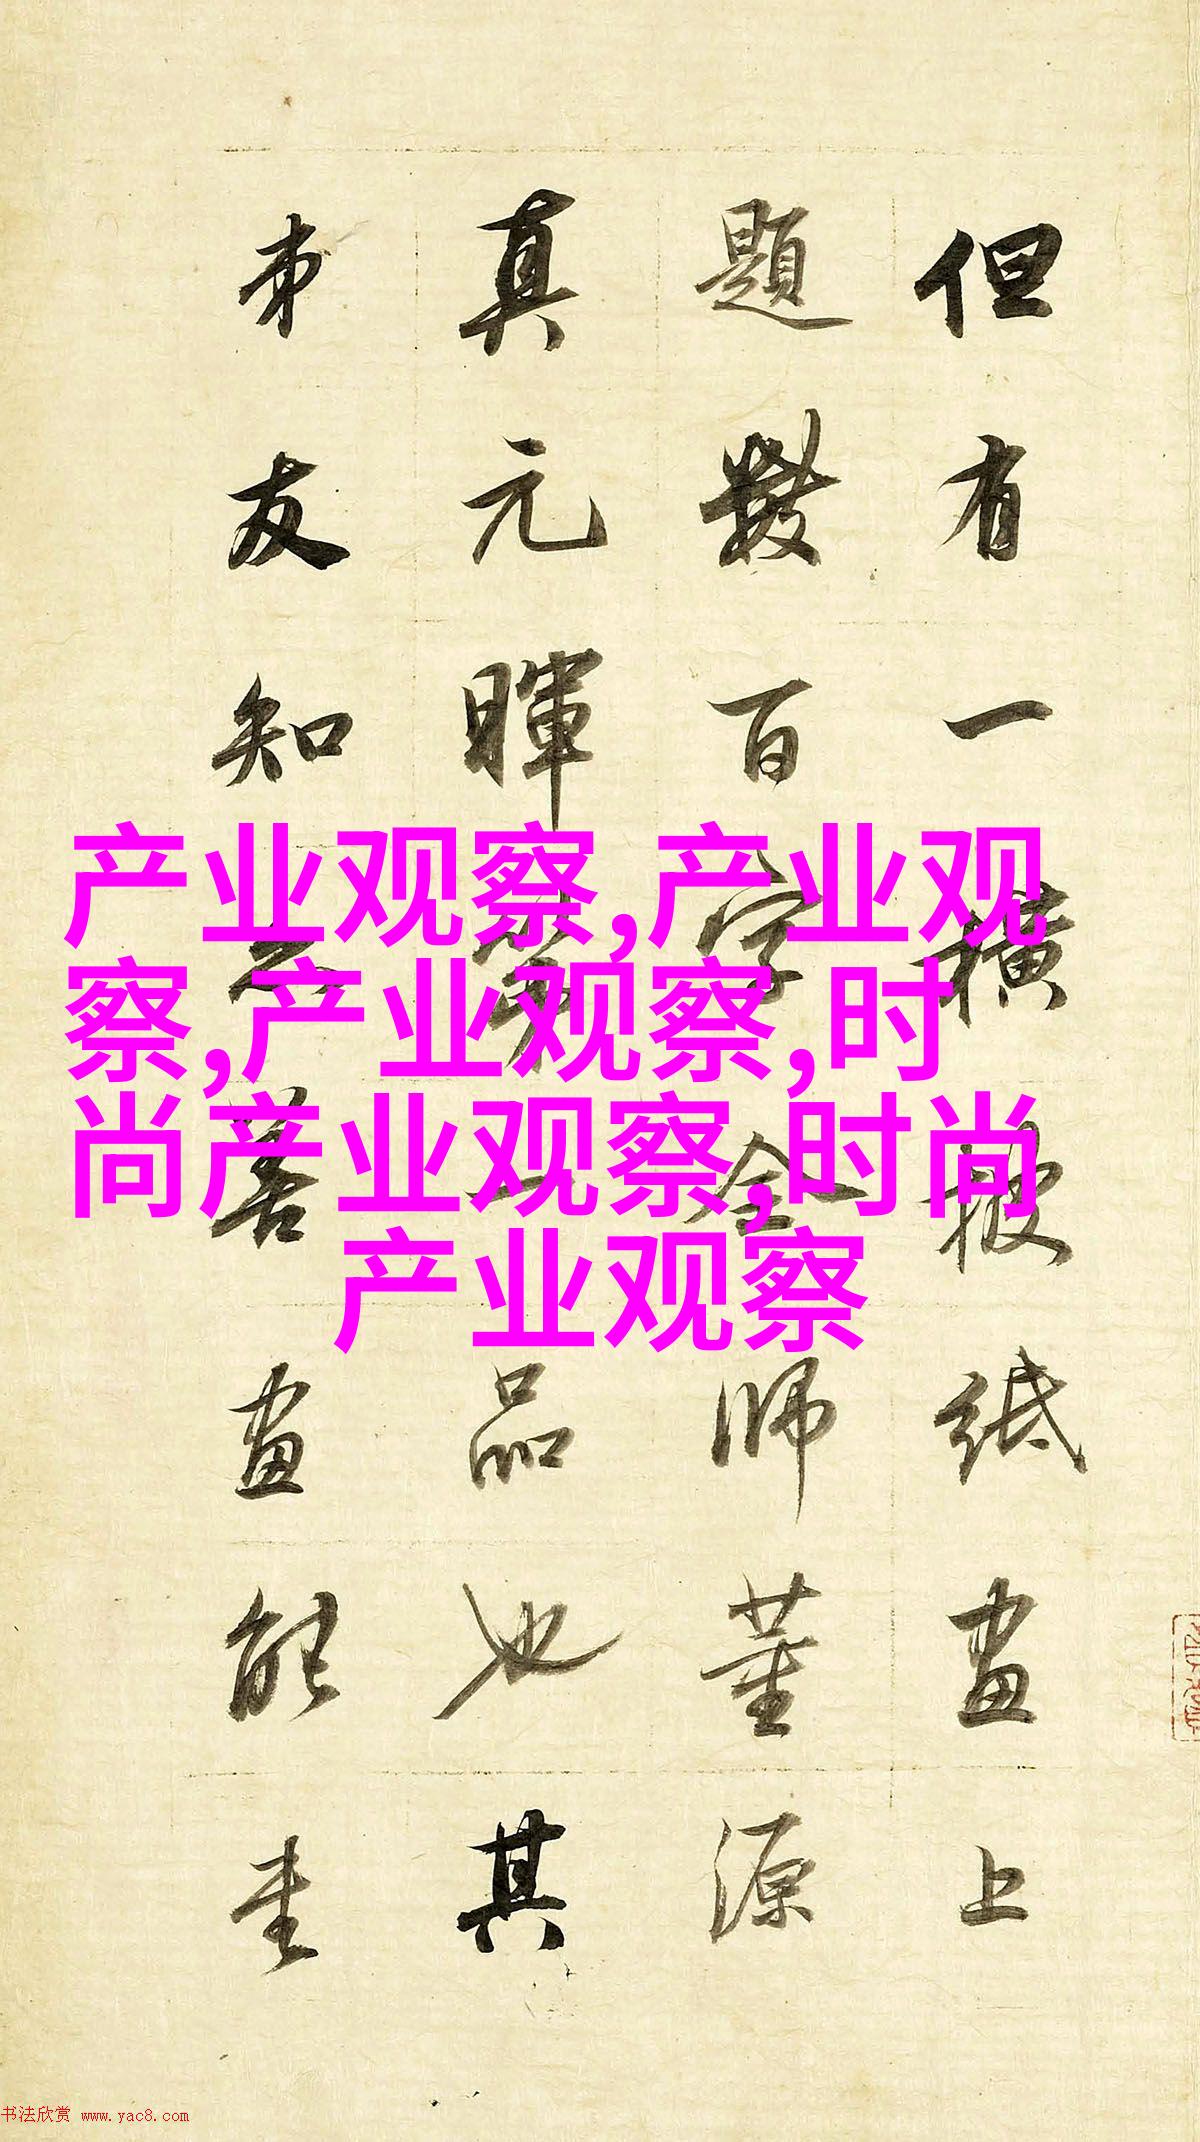 但有一横披纸画上
題數百字全師董源
真元暉第一品也其
弟友知之善画能画
产业观察,产业观
察,产业观察,时
尚产业观察,时尚
产业观察
书法欣赏 www.yac8.com